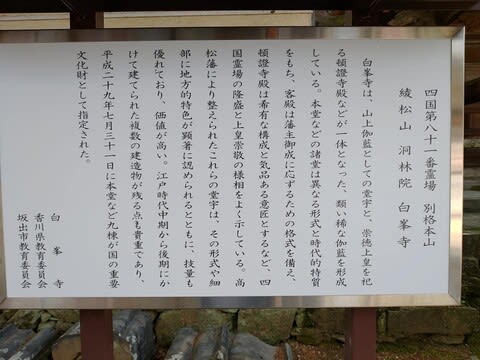 四国第八十一番霊場　別格本山
綾松山　洞林院　白峯寺
白峯寺は、山上伽藍としての堂宇と、崇徳上皇を祀
る頓證寺殿などが一体となった、類い稀な伽藍を形成
している。本堂などの諸堂は異なる形式と時代的特質
をもち、客殿は藩主御成に応ずるための格式を備え、
頓證寺殿は希有な構成と気品ある意匠とするなど、四
国霊場の隆盛と上皇崇敬の様相をよく示している。高
松藩により整えられたこれらの堂宇は、その形式や細
部に地方的特色が顕著に認められるとともに、技量も
優れており、価値が高い。江戸時代中期から後期にか
けて建てられた複数の建造物が残る点も貴重であり、
平成二十九年七月三十一日に本堂など九棟が国の重要
文化財として指定された。
白峯寺
香川県教育委員会
坂出市教育委員会